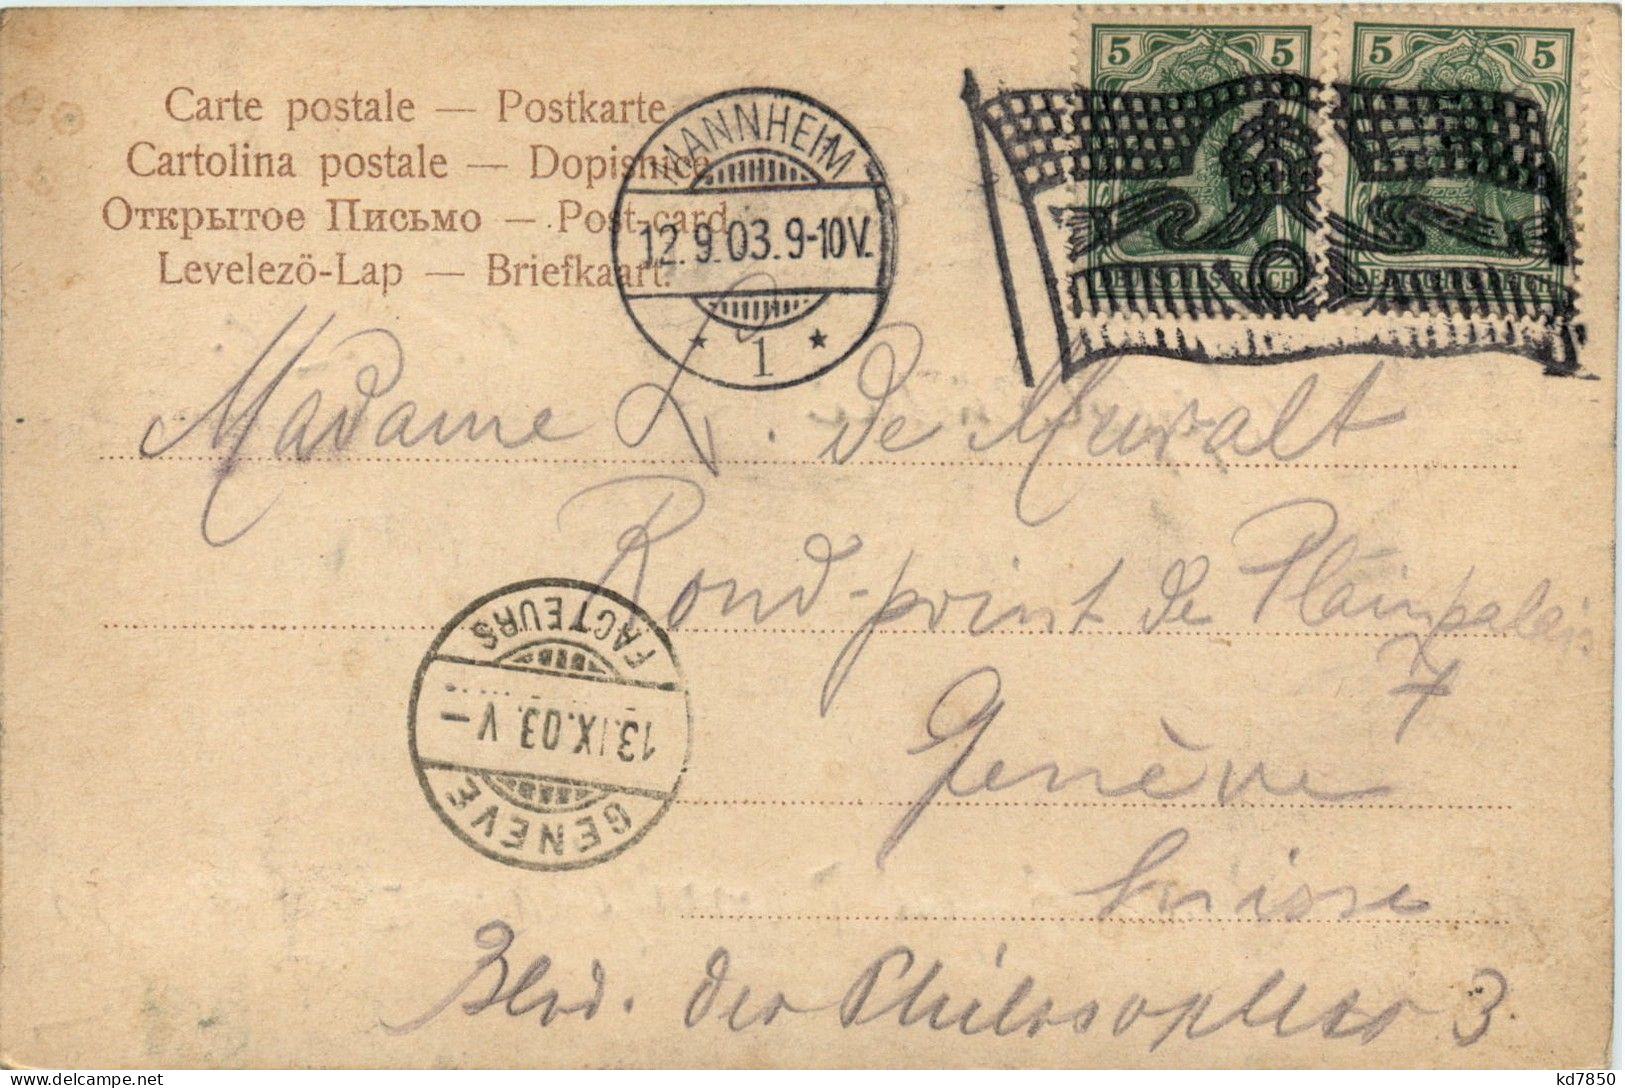 Carte postale — Postkarte
Cartolina postale — Dopisnica
Открытое Письмо — Post-card
Levelezö-Lap — Briefkaart.
MANNHEIM
12.9.03.9-10V.
* 1 *
5 5
DEUTSCHES REICH
5 5
DEUTSCHES REICH
Madame L. de Muralt
Rond-point de Plainpalais
7
Genève
Suisse
Blvd. des Philosophes 3.
FACTEURS
13.IX.03.V–
GENÈVE
kd7850